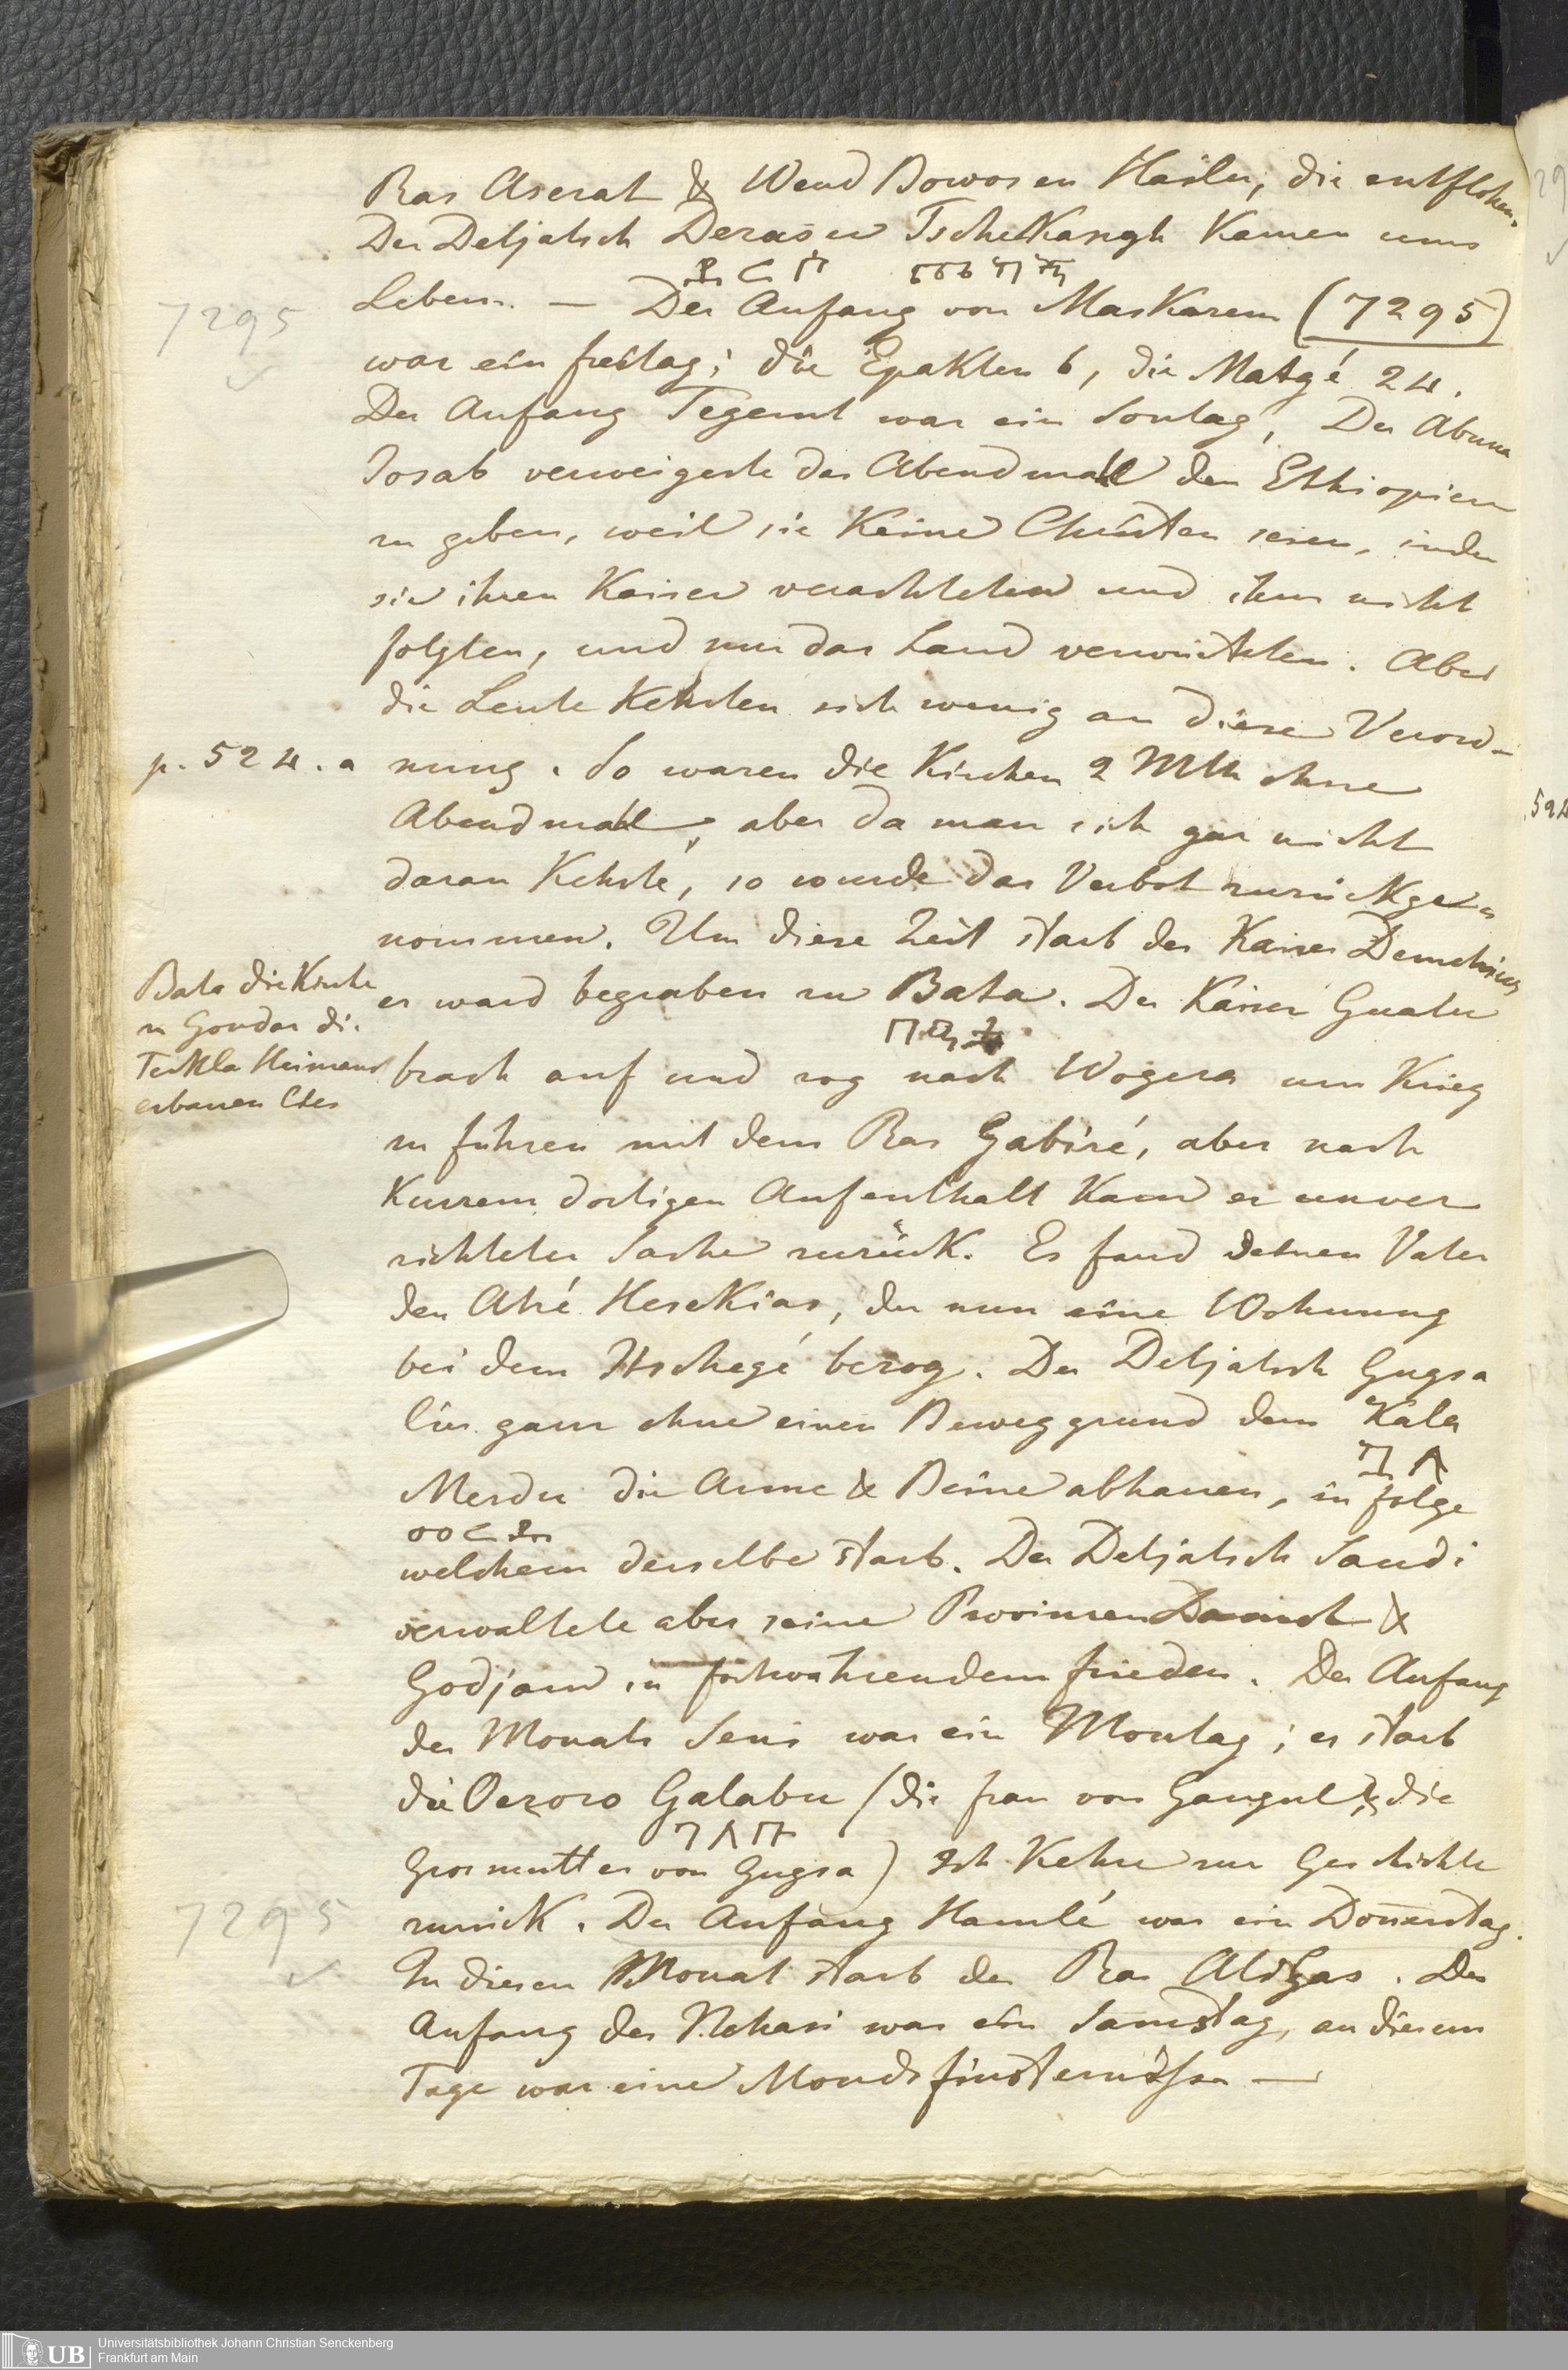 Ras Aserat & Wend Bowosen Hailu, die entflohen.
Der Detjatsch Derasu Tschekangh Kamen ums
Leben. — Der Anfang von Maskarem (7295)
7295
war ein freitag; die Epakten 6, die Matgé 24.
Der Anfang Tegemt war ein Sontag, Der Abuna
Josab verweigerte das Abendmahl den Ethiopiern
zu geben, weil sie Keine Christen seien, inder
sie ihren Kaiser verachteten und ihm nicht
folgten, und nur das Land verwüsteten. Aber
die Leute Kehrten sich wenig an diese Verord-
p. 524. a
nung. So waren die Kirchen 2 Mth ohne
Abendmahl, aber da man sich gar nicht
daran Kehrte, so wurde das Verbot zurückge-
nommen. Um diese Zeit starb der Kaiser Demetrius
er ward begraben zu Bata. Der Kaiser Gualu
በኣታ
Bata die Kirche
zu Gondar die
Teckla Heimanot
erbauen lies
brach auf und zog nach Wogera um Krieg
zu führen mit dem Ras Gabiré, aber nach
Kurzem dortigen Aufenthalt Kam er unver
richteter Sache zurück. Er fand seinen Vater
den Atzé Heskias, der nun eine Wohnung
bei dem Itschegé bezog. Der Detjatsch Gugsa
lies ganz ohne einen Beweggrund dem Kala
ቃለ
Merdu die Arme & Beine abhauen, in folge
መርዱ
welchem derselbe starb. Der Detjatsch Saudi
verwaltete aber seine Provinzen Damot &
Godjam in fortwährendem frieden. Der Anfang
des Monats Seni war ein Montag; es starb
die Oezoro Galabu (die frau von Gangul, & die
ገለቡ
Grosmutter von Gugsa) Ich Kehre zur Geschichte
7295
zurück. Der Anfang Hamlé war ein Donnerstag.
In diesen Monat starb der Ras Aligas. Der
Anfang des Nehasi war ein Samstag, an diesem
Tage war eine Mondsfinsternisse —
Universitätsbibliothek Johann Christian Senckenberg
Frankfurt am Main
UB